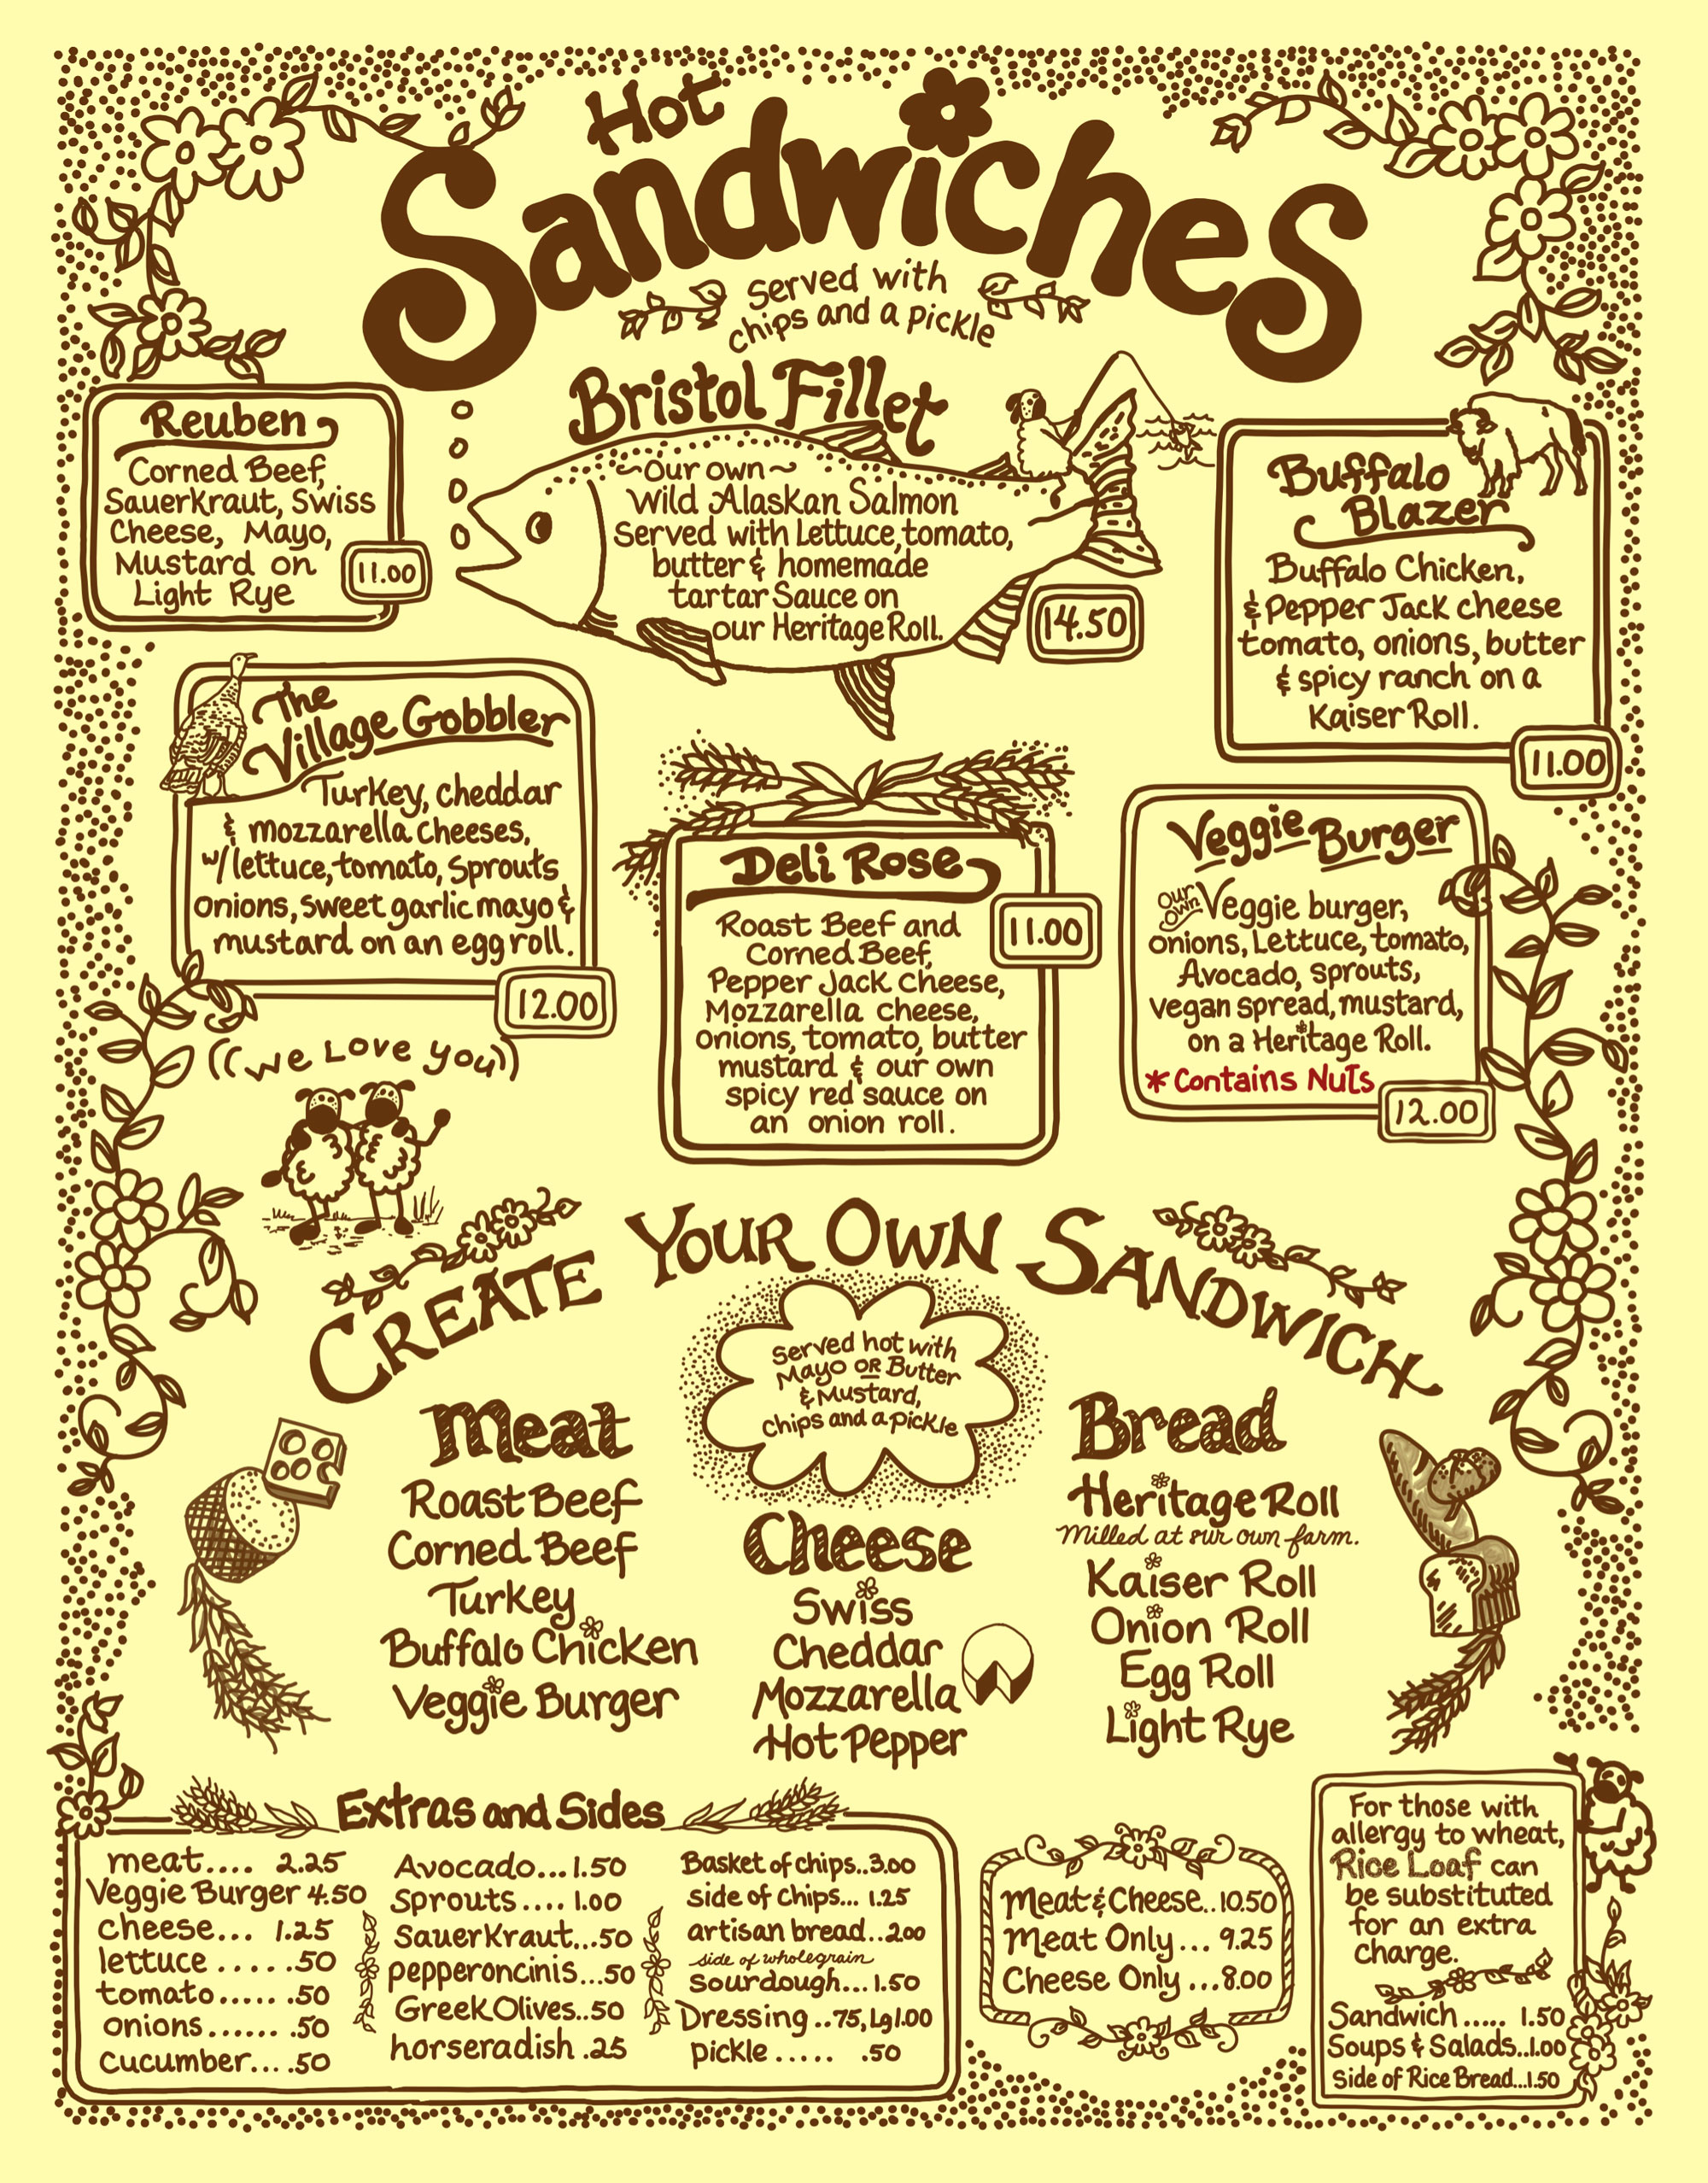 Hot
Sandwiches
Served with
chips and a pickle
Reuben
Corned Beef,
Sauerkraut, Swiss
Cheese, Mayo,
Mustard on
Light Rye
11.00
Bristol Fillet
~Our own~
Wild Alaskan Salmon
Served with Lettuce, tomato,
butter & homemade
tartar Sauce on
our Heritage Roll.
14.50
Buffalo
Blazer
Buffalo Chicken,
& Pepper Jack cheese
tomato, onions, butter
& spicy ranch on a
Kaiser Roll.
11.00
The
Village Gobbler
Turkey, cheddar
& mozzarella cheeses,
w/ lettuce, tomato, Sprouts
onions, sweet garlic mayo &
mustard on an egg roll.
12.00
Deli Rose
Roast Beef and
Corned Beef,
Pepper Jack Cheese,
Mozzarella cheese,
onions, tomato, butter
mustard & our own
spicy red sauce on
an onion roll.
11.00
Veggie Burger
Our own Veggie burger,
onions, Lettuce, tomato,
Avocado, sprouts,
vegan spread, mustard,
on a Heritage Roll.
* Contains Nuts
12.00
((We Love you))
Create Your Own Sandwich
Served hot with
Mayo OR Butter
& Mustard,
Chips and a pickle
Meat
Roast Beef
Corned Beef
Turkey
Buffalo Chicken
Veggie Burger
Cheese
Swiss
Cheddar
Mozzarella
Hot Pepper
Bread
Heritage Roll
Milled at our own farm.
Kaiser Roll
Onion Roll
Egg Roll
Light Rye
Extras and Sides
meat.... 2.25
Veggie Burger 4.50
cheese... 1.25
lettuce ......50
tomato...... .50
onions...... .50
cucumber... .50
Avocado...1.50
Sprouts.... 1.00
Sauerkraut...50
pepperoncinis...50
Greek Olives..50
horseradish .25
Basket of chips..3.00
side of chips... 1.25
artisan bread..2.00
side of wholegrain
sourdough...1.50
Dressing ..75, Lg 1.00
pickle ..... .50
Meat & Cheese..10.50
Meat Only... 9.25
Cheese Only ...8.00
For those with
allergy to wheat,
Rice Loaf can
be substituted
for an extra
charge.
Sandwich ..... 1.50
Soups & Salads..1.00
Side of Rice Bread...1.50